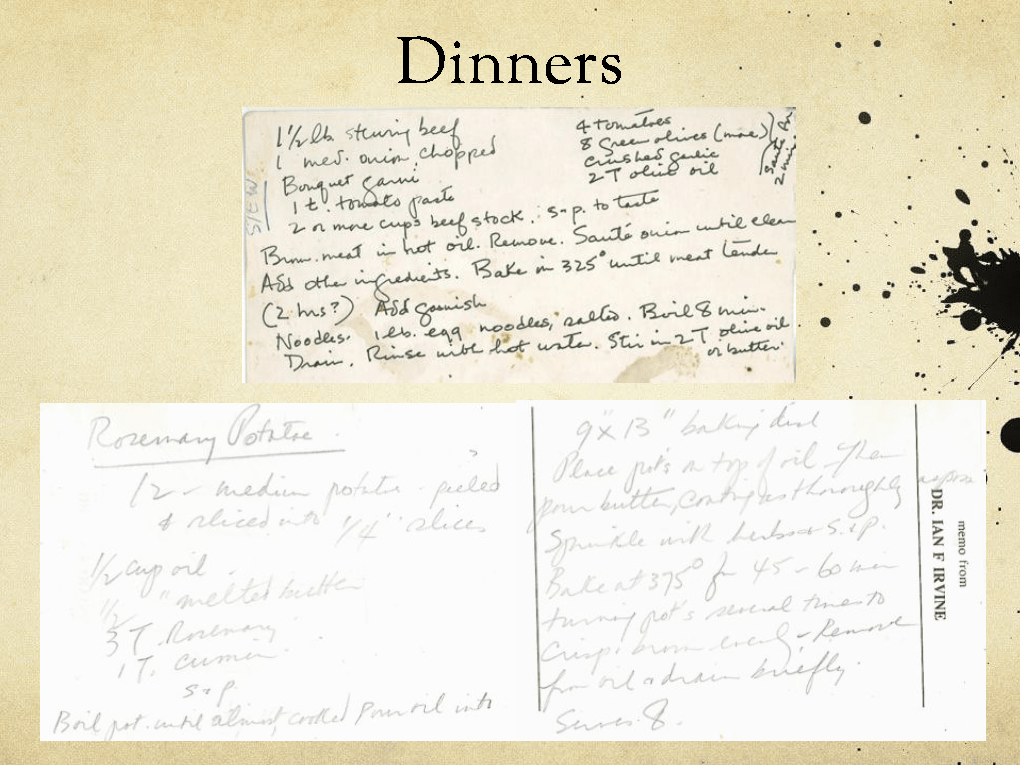 Dinners
1½ lb. stewing beef
1 med. onion, chopped
Bouquet garni
1 t. tomato paste
2 or more cups beef stock. s+p. to taste
4 tomatoes
8 Green olives (more)
crushed garlic
2 T olive oil
Sauté
2 min.
Brown meat in hot oil. Remove. Sauté onion until clear
Add other ingredients. Bake in 325° until meat tender
(2 hrs?) Add garnish
Noodles. 1 lb. egg noodles, salted. Boil 8 min.
Drain. Rinse with hot water. Stir in 2 T olive oil
or butter.
Rosemary Potatoe
12 - medium potatoe - peeled
& sliced into 1/4" slices
½ cup oil
½ " melted butter
3 T. Rosemary
1 T. cumin
s+p
Boil pot. until almost cooked Pour oil into
9" x 13" baking dish
Place pot's on top of oil. Then
pour butter, coating as thoroughly as poss
Sprinkle with herbs + s.+p.
Bake at 375° for 45 - 60 min
turning pot's several times to
crisp + brown evenly - Remove
from oil + drain briefly.
Serves 8.
memo from
DR. IAN F IRVINE